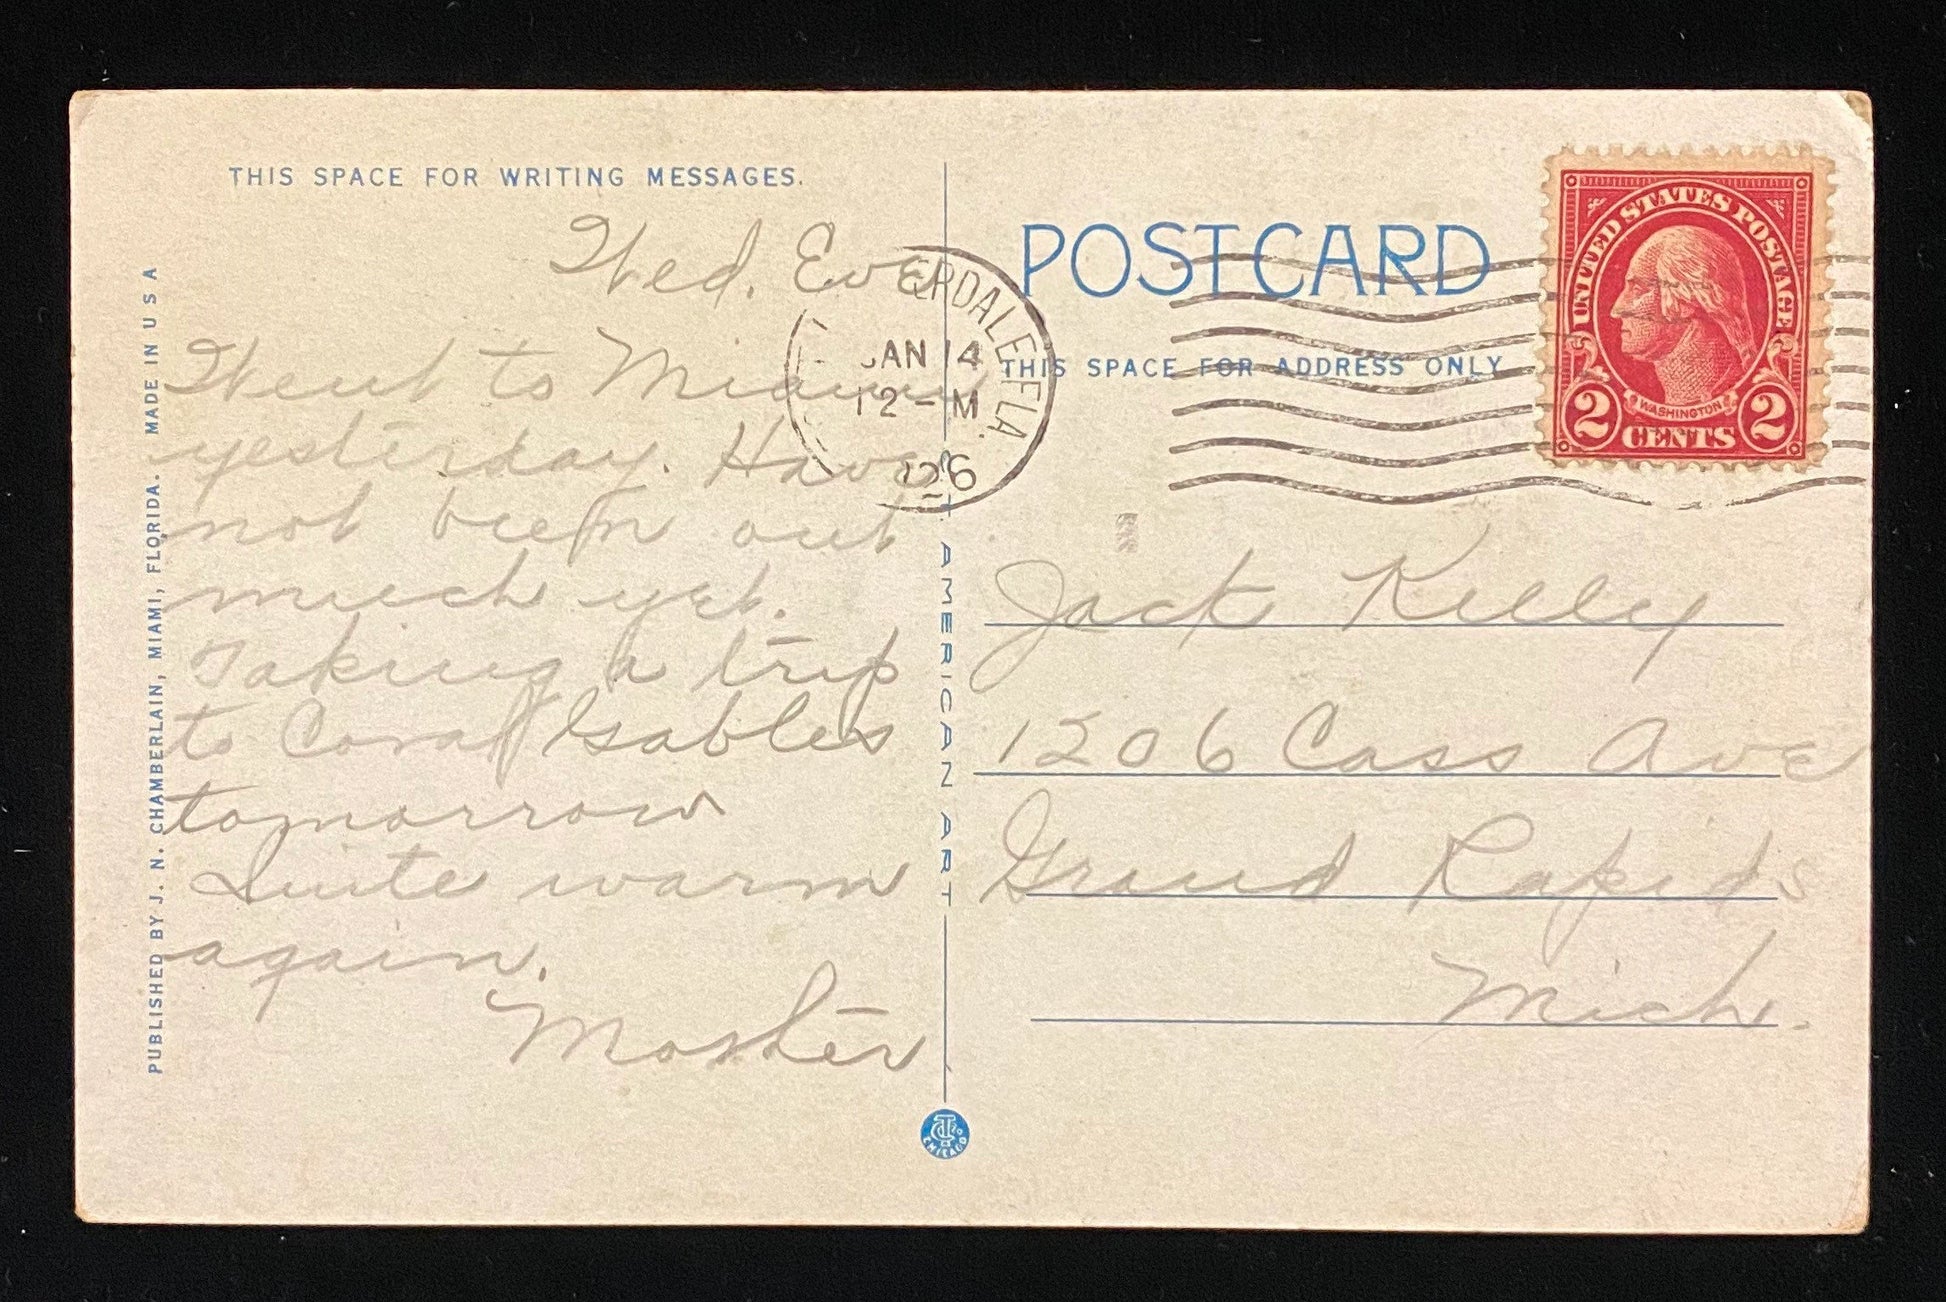 THIS SPACE FOR WRITING MESSAGES.
Wed. Eve
Went to Miami
yesterday. Have
not been out
much yet.
Taking a trip
to Coral Gables
tomorrow
Quite warm
again.
Mother
PUBLISHED BY J. N. CHAMBERLAIN, MIAMI, FLORIDA. MADE IN U S A
ERDALE FLA.
JAN 14
12 - M
1926
C. T. AMERICAN ART
CT CO
CHICAGO
POST CARD
THIS SPACE FOR ADDRESS ONLY
UNITED STATES POSTAGE
WASHINGTON
2 CENTS 2
Jack Kelly
1206 Cass Ave
Grand Rapids
Mich.